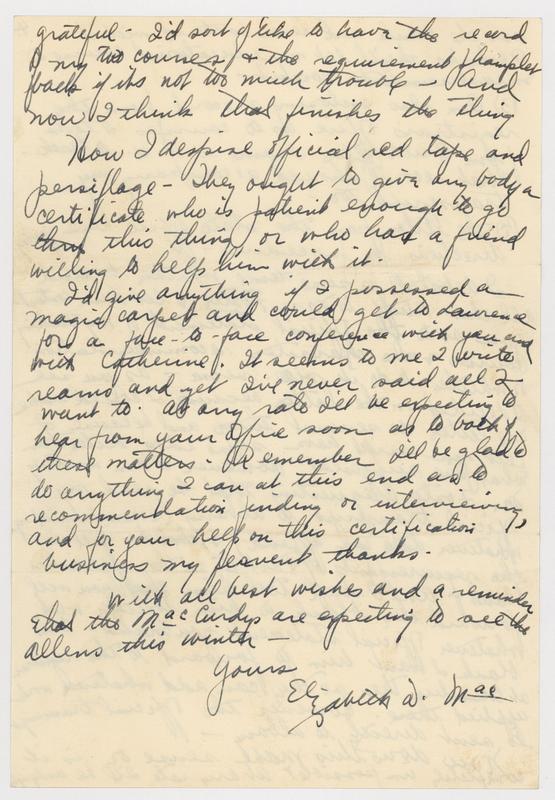 grateful - I'd sort of like to have the record
of my two courses & the requirement phamplet
back if its not too much trouble - And
now I think that finishes the thing
How I despise official red tape and
persiflage - They ought to give any body a
certificate who is patient enough to go
thru this thing, or who has a friend
willing to help him with it.
I'd give anything if I possessed a
magic carpet and could get to Lawrence
for a face-to-face conference with you and
with Catherine. It seems to me I write
reams and yet I've never said all I
want to. At any rate I'll be expecting to
hear from your office soon as to both of
these matters. Remember I'll be glad to
do anything I can at this end as to
recommendation finding or interviewing,
and for your help on this certification
business my fervent thanks.
With all best wishes and a reminder
that the MacCurdys are expecting to see the
Allens this winter -
Yours
Elizabeth A. Mac